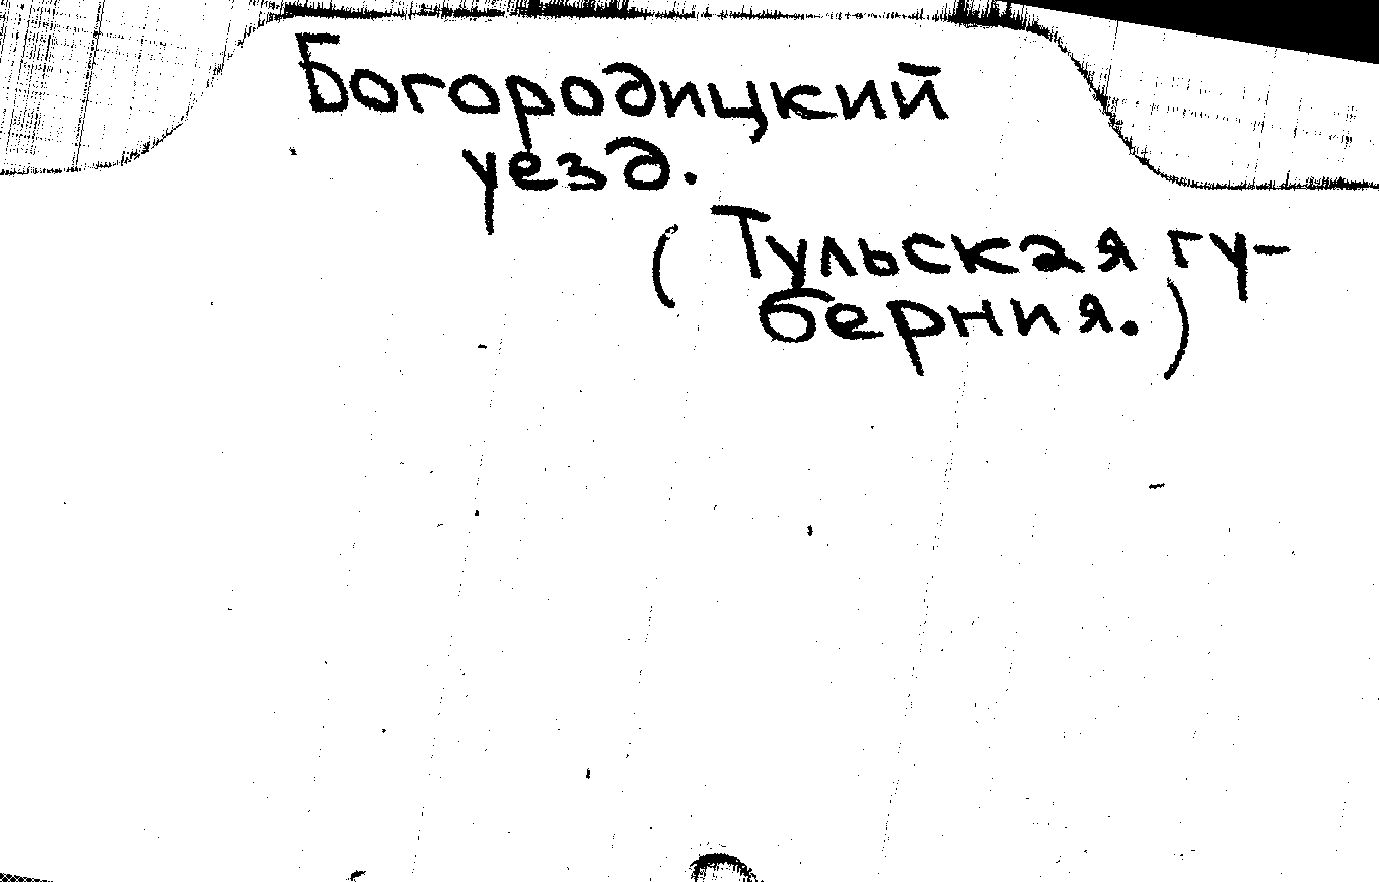 Богородицкий
уезд.
(Тульская гу-
берния.)